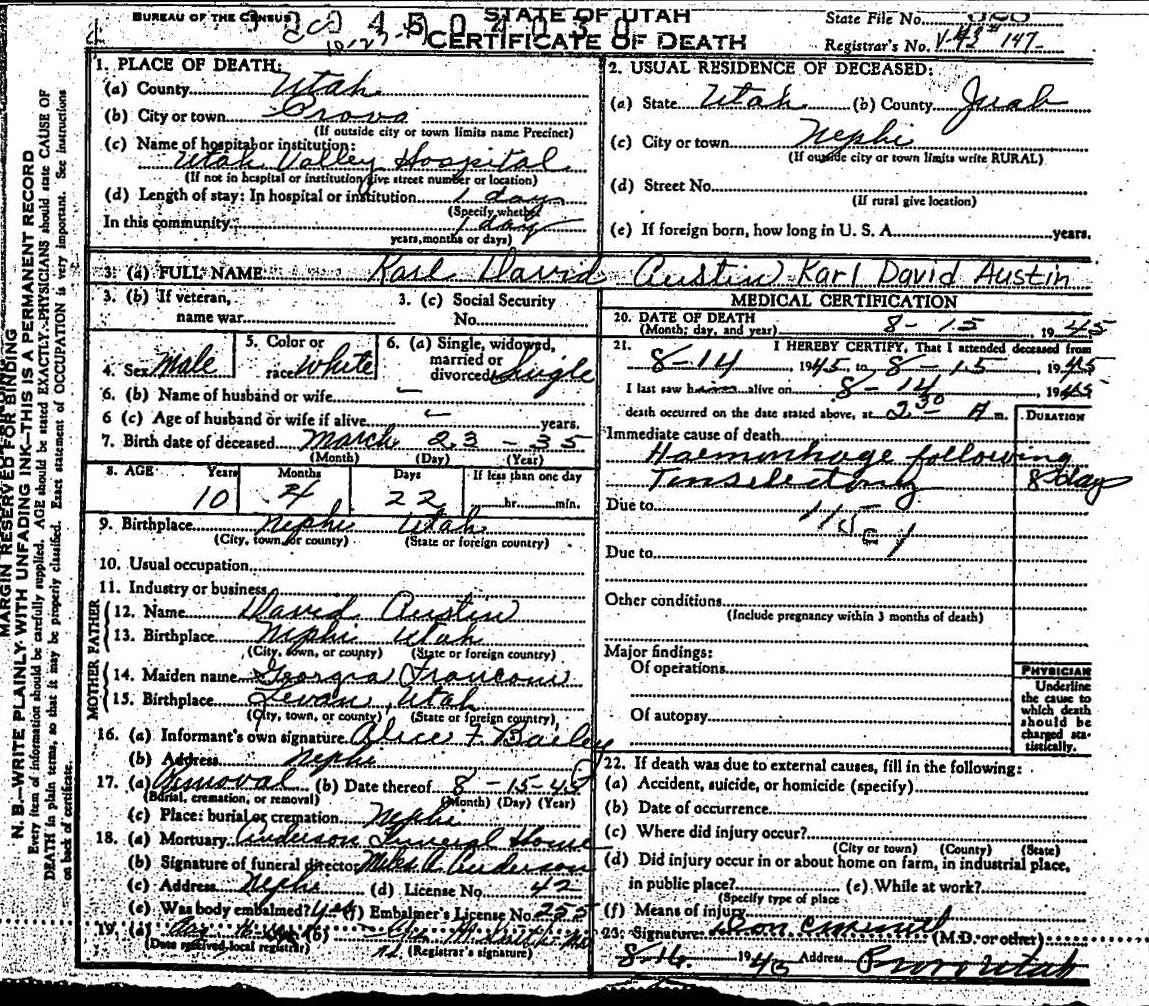 BUREAU OF THE CENSUS
STATE OF UTAH
CERTIFICATE OF DEATH
State File No.
Registrar's No. 147
MARGIN RESERVED FOR BINDING
N. B.—WRITE PLAINLY, WITH UNFADING INK—THIS IS A PERMANENT RECORD
Every item of information should be carefully supplied. AGE should be stated EXACTLY. PHYSICIANS should state CAUSE OF
DEATH in plain terms, so that it may be properly classified. Exact statement of OCCUPATION is very important. See instructions
on back of certificate.
1. PLACE OF DEATH:
(a) County Utah
(b) City or town Provo
(If outside city or town limits name Precinct)
(c) Name of hospital or institution:
Utah Valley Hospital
(If not in hospital or institution give street number or location)
(d) Length of stay: In hospital or institution 1 day
(Specify whether
In this community 1 day
years, months or days)
2. USUAL RESIDENCE OF DECEASED:
(a) State Utah (b) County Juab
(c) City or town Nephi
(If outside city or town limits write RURAL)
(d) Street No.
(If rural give location)
(e) If foreign born, how long in U. S. A. years.
3. (a) FULL NAME Karl David Austin Karl David Austin
3. (b) If veteran, name war
3. (c) Social Security No.
4. Sex Male
5. Color or race White
6. (a) Single, widowed, married or divorced Single
6. (b) Name of husband or wife
6 (c) Age of husband or wife if alive years.
7. Birth date of deceased March 23 - 35
(Month) (Day) (Year)
8. AGE Years Months Days If less than one day
10 4 22 hr. min.
9. Birthplace Nephi Utah
(City, town, or county) (State or foreign country)
10. Usual occupation
11. Industry or business
FATHER
12. Name David Austin
13. Birthplace Nephi Utah
(City, town, or county) (State or foreign country)
MOTHER
14. Maiden name Georgia Francom
15. Birthplace Levan, Utah
(City, town, or county) (State or foreign country)
16. (a) Informant's own signature Alice F. Bailey
(b) Address Nephi
17. (a) Removal (b) Date thereof 8-15-45
(Burial, cremation, or removal) (Month) (Day) (Year)
(c) Place: burial or cremation Nephi
18. (a) Mortuary Anderson Funeral Home
(b) Signature of funeral director Miles A. Anderson
(c) Address Nephi (d) License No. 42
(e) Was body embalmed? yes (f) Embalmer's License No. 255
19. (a) (b)
(Date received local registrar) (Registrar's signature)
MEDICAL CERTIFICATION
20. DATE OF DEATH
(Month, day, and year) 8-15, 1945
21. I HEREBY CERTIFY, That I attended deceased from
8-14, 1945, to 8-15, 1945
I last saw him alive on 8-14, 1945
death occurred on the date stated above, at 2 30 A m.
DURATION
Immediate cause of death
Haemorrhage following
Tonselectomy 8 day
Due to
Due to
Other conditions
(Include pregnancy within 3 months of death)
Major findings:
Of operations
Of autopsy
PHYSICIAN
Underline
the cause to
which death
should be
charged sta-
tistically.
22. If death was due to external causes, fill in the following:
(a) Accident, suicide, or homicide (specify)
(b) Date of occurrence
(c) Where did injury occur?
(City or town) (County) (State)
(d) Did injury occur in or about home on farm, in industrial place,
in public place? (e) While at work?
(Specify type of place
(f) Means of injury
23. Signature Don (M.D. or other)
8-16 1945 Address Provo Utah